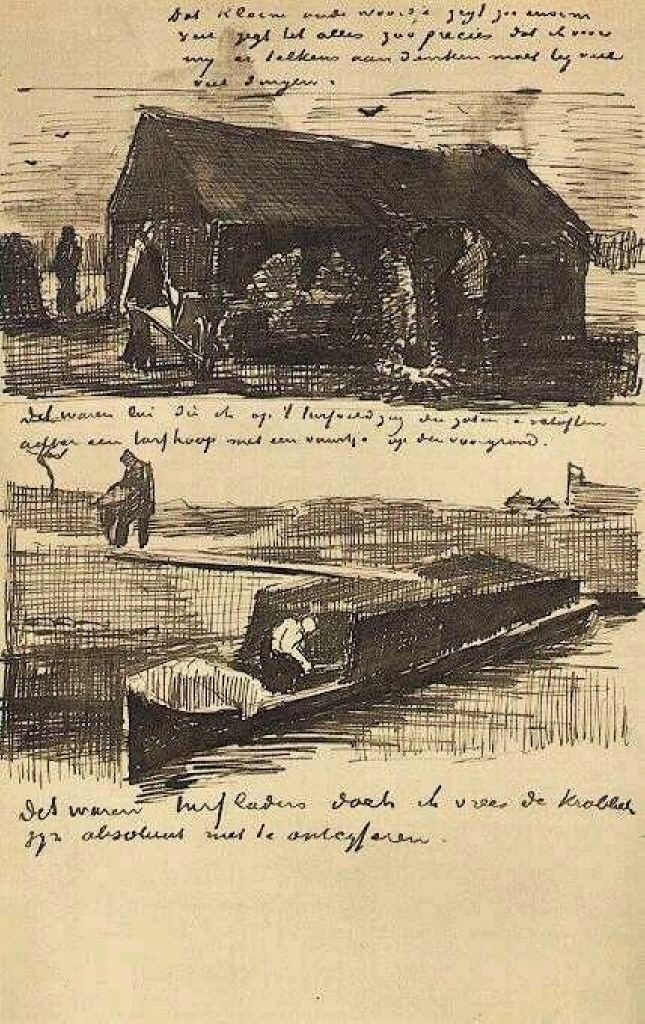 Dat kleine oude woordje zegt zoo enorm
veel zegt het alles zoo precies dat ik voor
my er telkens aan denken moet by veel
veel dingen.
Det waren lui die ik op 't turfveld zag die zaten e schoften
achter een turfhoop met een vuurtje op den voorgrond.
Det waren turfladers doch ik vrees de krabbels
zyn absoluut niet te ontcyferen.